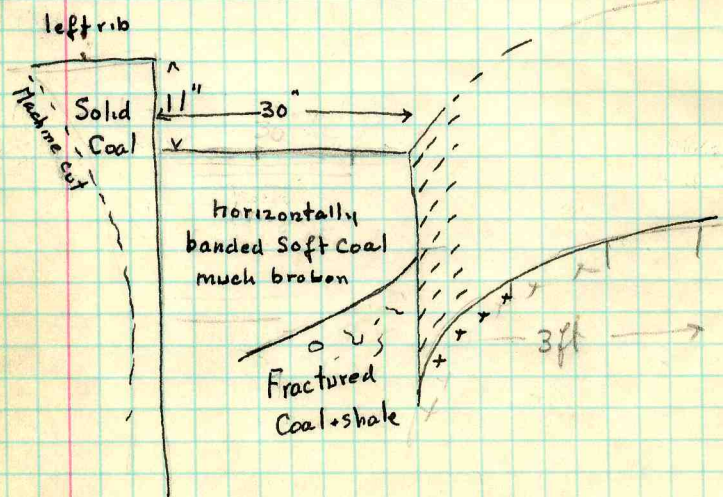 left rib
Machine cut
Solid
Coal
11"
30"
horizontally
banded Soft Coal
much broken
Fractured
Coal + shale
3ft